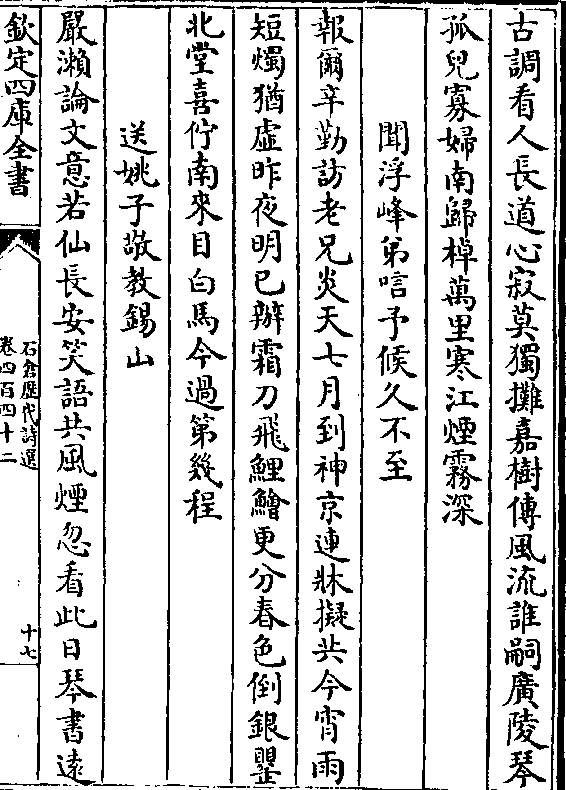 古調看人長道心寂莫獨攤嘉樹傳風流誰嗣廣陵琴
孤兒寡婦南歸棹萬里寒江煙霧深
聞浮峰弟唁予候久不至
報爾辛勤訪老兄炎天七月到神京連牀擬共今宵雨
短燭猶虛昨夜明已辦霜刀飛鯉鱠更分春色倒銀罌
北堂喜佇南來目白馬今過第幾程
送姚子敬教錫山
嚴瀨論文意若仙長安笑語共風煙忽看此日琴書遠
欽定四庫全書
石倉歷代詩選
卷四百四十二
十七